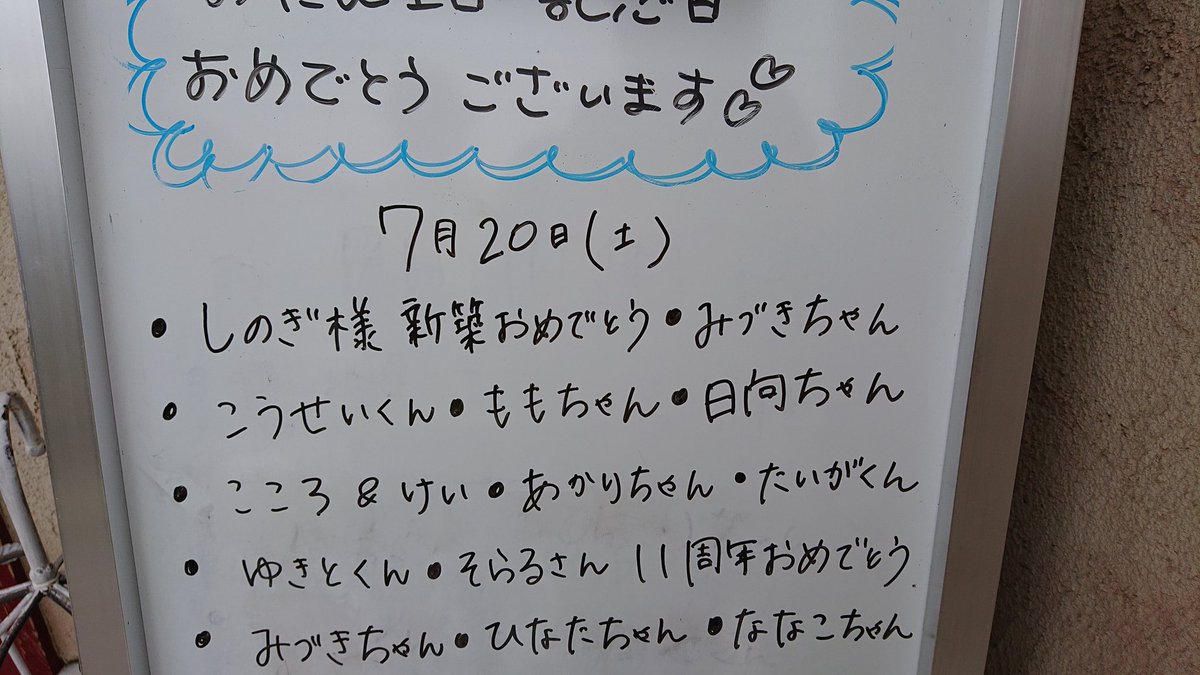 おたん生日 記念日
おめでとうございます♡♡
7月20日(土)
・しのぎ様 新築おめでとう・みづきちゃん
・こうせいくん・ももちゃん・日向ちゃん
・こころ & けい・あかりちゃん・たいがくん
・ゆきとくん・そらるさん 11周年おめでとう
・みづきちゃん・ひなたちゃん・ななこちゃん